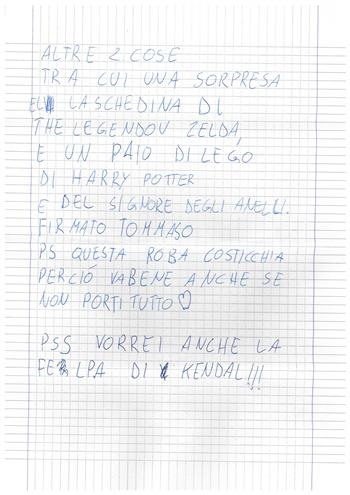 ALTRE 2 COSE
TRA CUI UNA SORPRESA
E LA SCHEDINA DI
THE LEGENDOV ZELDA,
E UN PAIO DI LEGO
DI HARRY POTTER
E DEL SIGNORE DEGLI ANELLI.
FIRMATO TOMMASO
PS QUESTA ROBA COSTICCHIA
PERCIÓ VABENE ANCHE SE
NON PORTI TUTTO♡
PSS VORREI ANCHE LA
FELPA DI KENDAL!!!